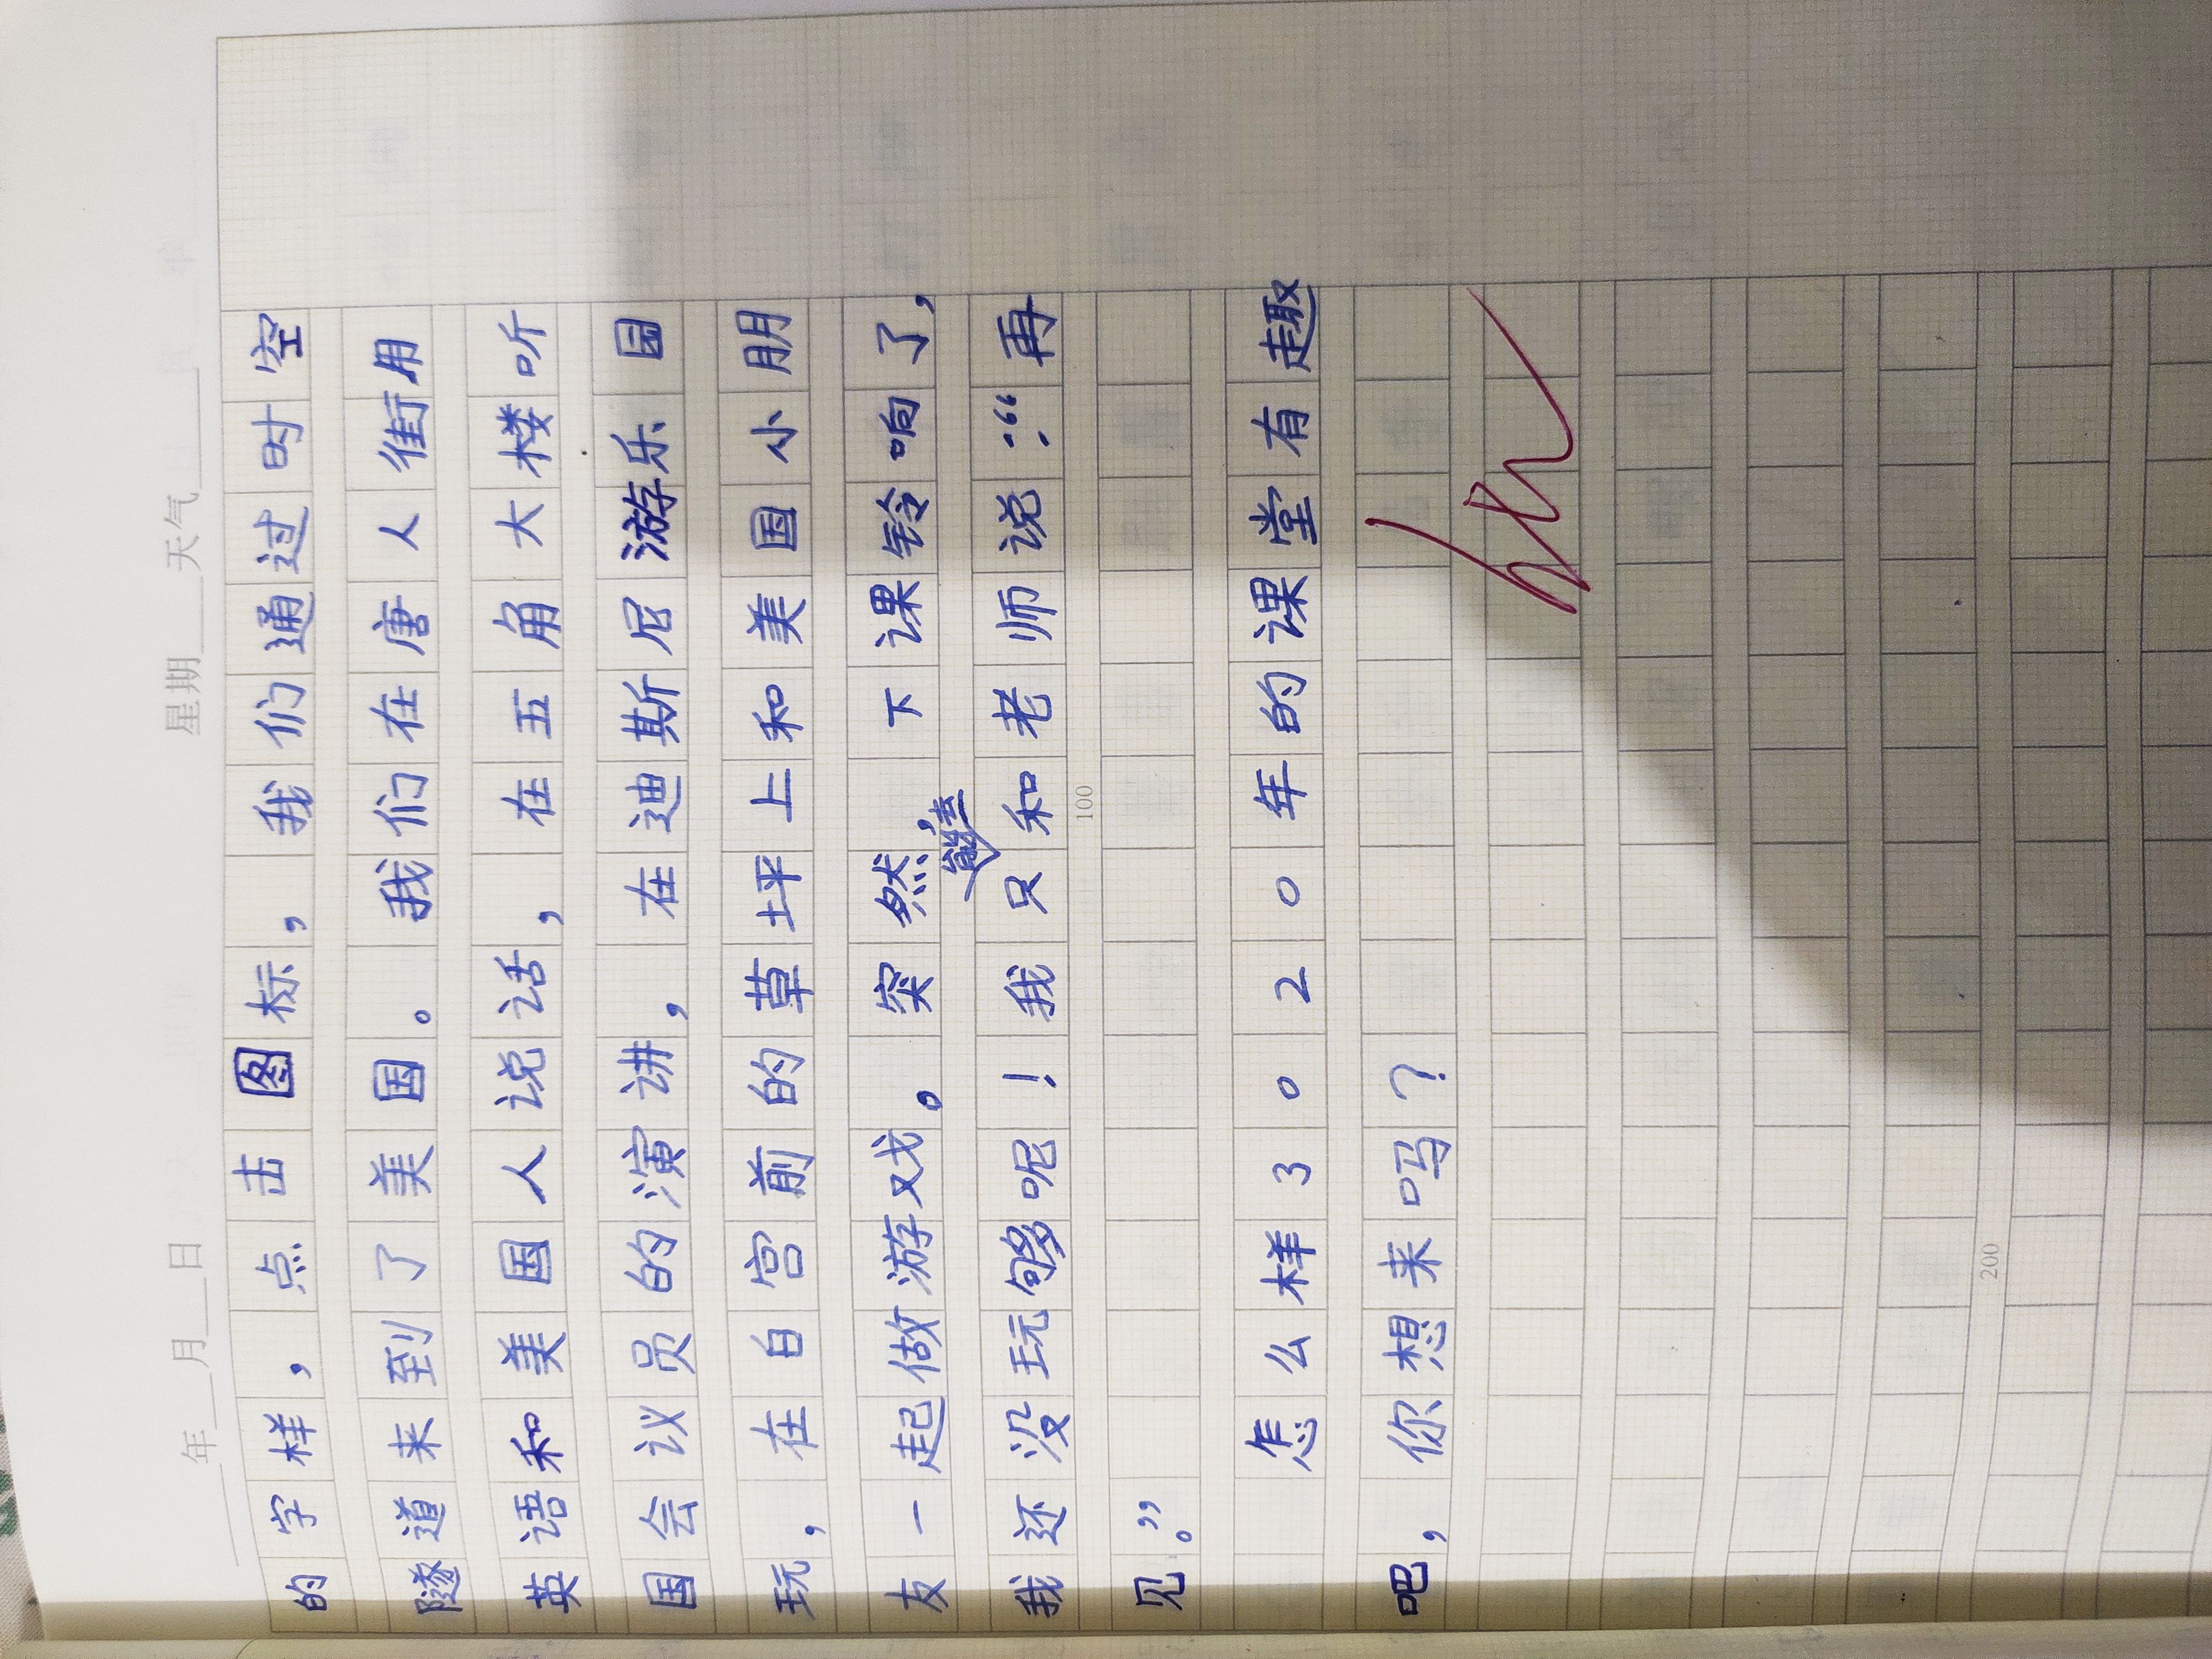 年 月 日 星期 天气
的字样，点击图标，我们通过时空
隧道来到了美国。我们在唐人街用
英语和美国人说话，在五角大楼听
国会议员的演讲，在迪斯尼游乐园
玩，在白宫前的草坪上和美国小朋
友一起做游戏。突然，下课铃响了，
我还没玩够呢！我只能和老师说：“再
100
见。”
怎么样3020年的课堂有趣
吧，你想来吗？
200